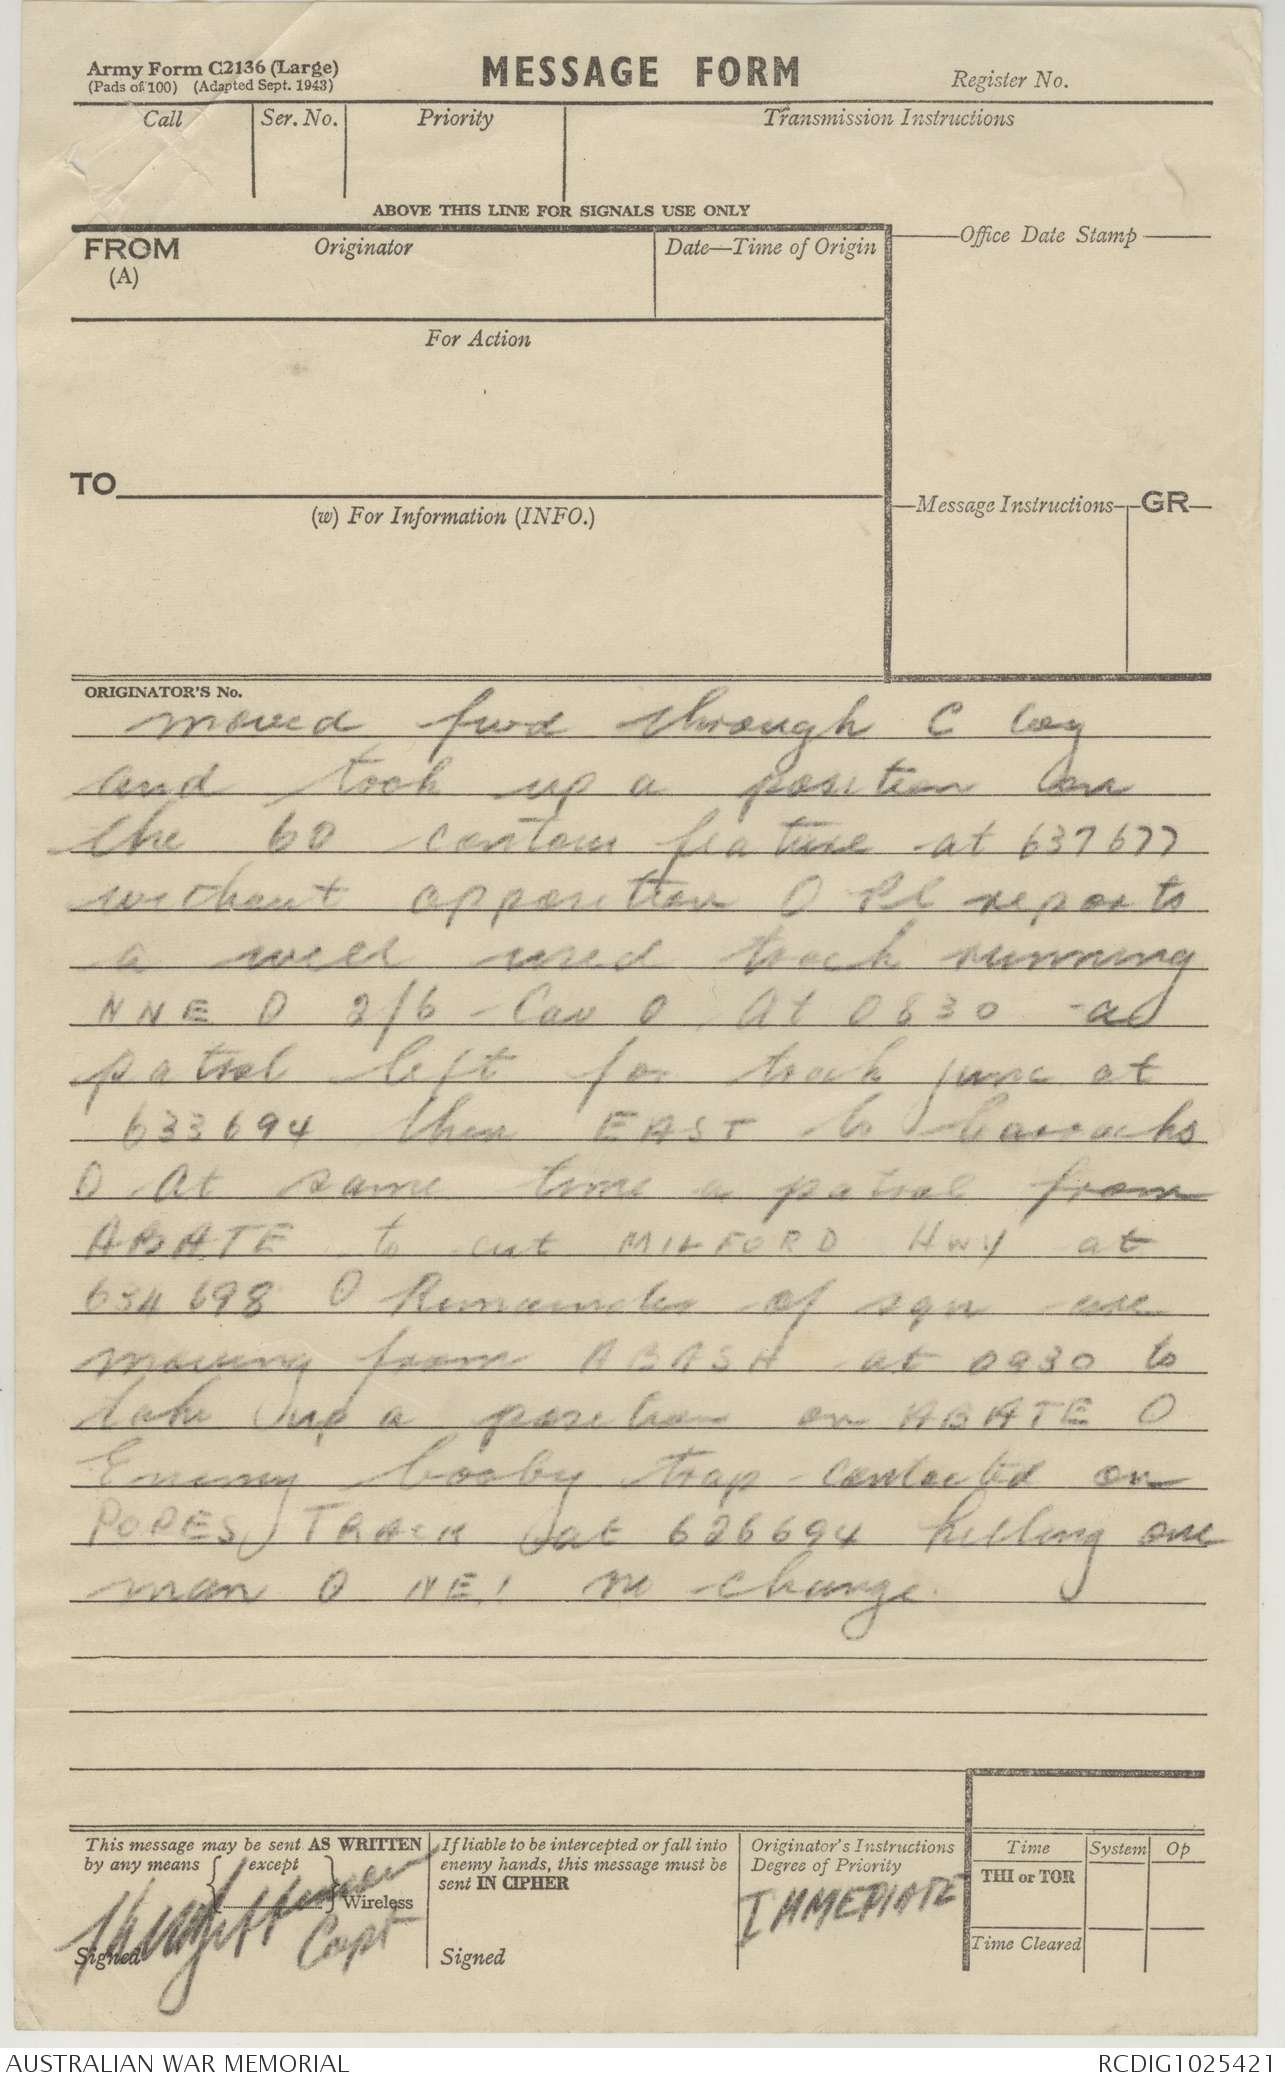 Army Form C2136 (Large)
(Pads of 100) (Adapted Sept. 1943)
MESSAGE FORM
Register No.
Call
Ser. No.
Priority
Transmission Instructions
ABOVE THIS LINE FOR SIGNALS USE ONLY
FROM
(A)
Originator
Date—Time of Origin
Office Date Stamp
For Action
TO
(w) For Information (INFO.)
Message Instructions
GR
ORIGINATOR'S No.
moved fwd through C Coy
and took up a position on
the 60 contour feature at 637677
without opposition O Pl reports
a well used track running
NNE O 2/6 Cav O At 0830 a
patrol left for track junc at
633694 then EAST to barracks
O At same time a patrol from
ABATE to cut MILFORD HWY at
634698 O Remainder of sqn are
moving from ABASH at 0930 to
take up a position on ABATE O
Enemy booby trap contacted on
POPES TRACK at 626694 killing one
man O NE! no change.
This message may be sent AS WRITTEN
by any means { except } Wireless
Signed
Capt
If liable to be intercepted or fall into
enemy hands, this message must be
sent IN CIPHER
Signed
Originator's Instructions
Degree of Priority
IMMEDIATE
Time
System
Op
THI or TOR
Time Cleared
AUSTRALIAN WAR MEMORIAL
RCDIG1025421